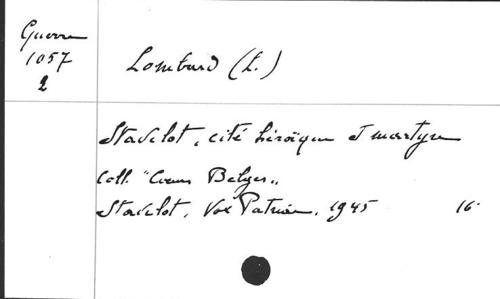 Guerre
1057
2
Lombard (L.)
Stavelot, cité héroïque et martyre
Coll. "Coeurs Belges"
Stavelot, Vox Patriae, 1945 16°